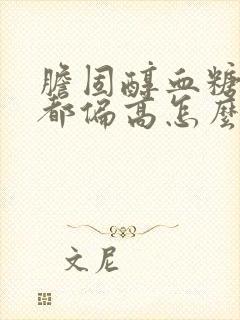 膽固醇血糖
都偏高怎麼
文尼